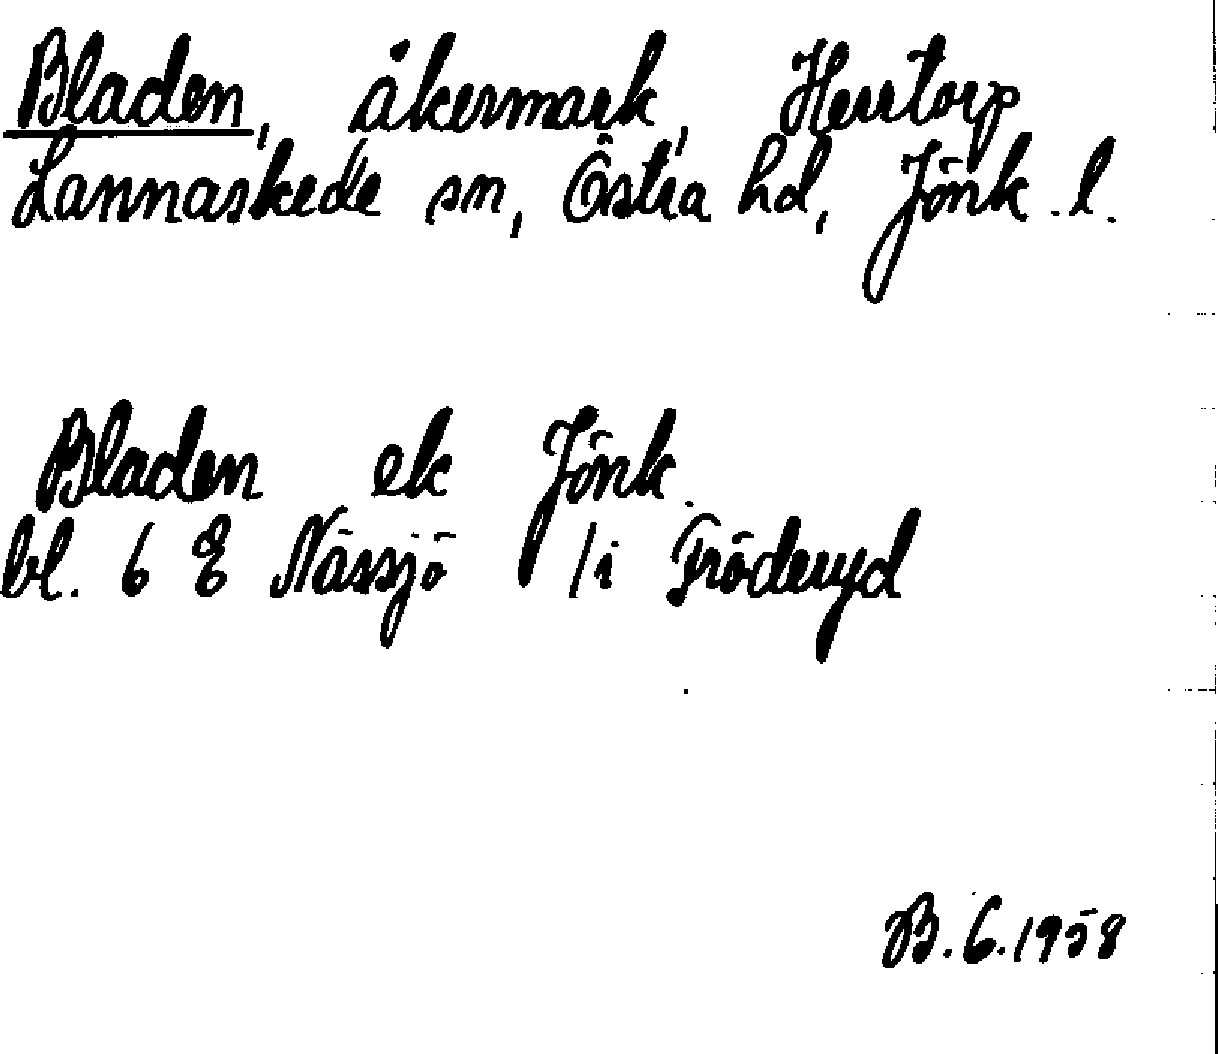 Bladen, åkermark, Herrtorp
Lannaskede sn, Östra hd, Jönk. l.
Bladen ek Jönk.
bl. 6 E Nässjö /i Fröderyd
B.G.1958